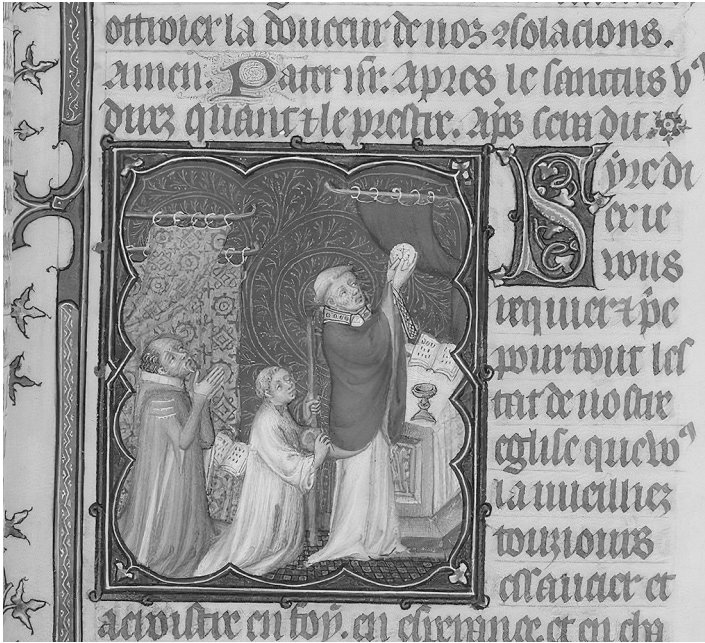 ottroier la douceur de noz ꝯsolacions.
Amen. Pater nr̃. Apres le sanctus vꝰ
direz quant le prestre. ap̃s
Syre di
ex ie
vous
requier ⁊
pour tout les
tat de nostre
eglise que voꝰ
la vueilliez
touziours
essaucier et
acroistre en foy. en esperance. et en cha